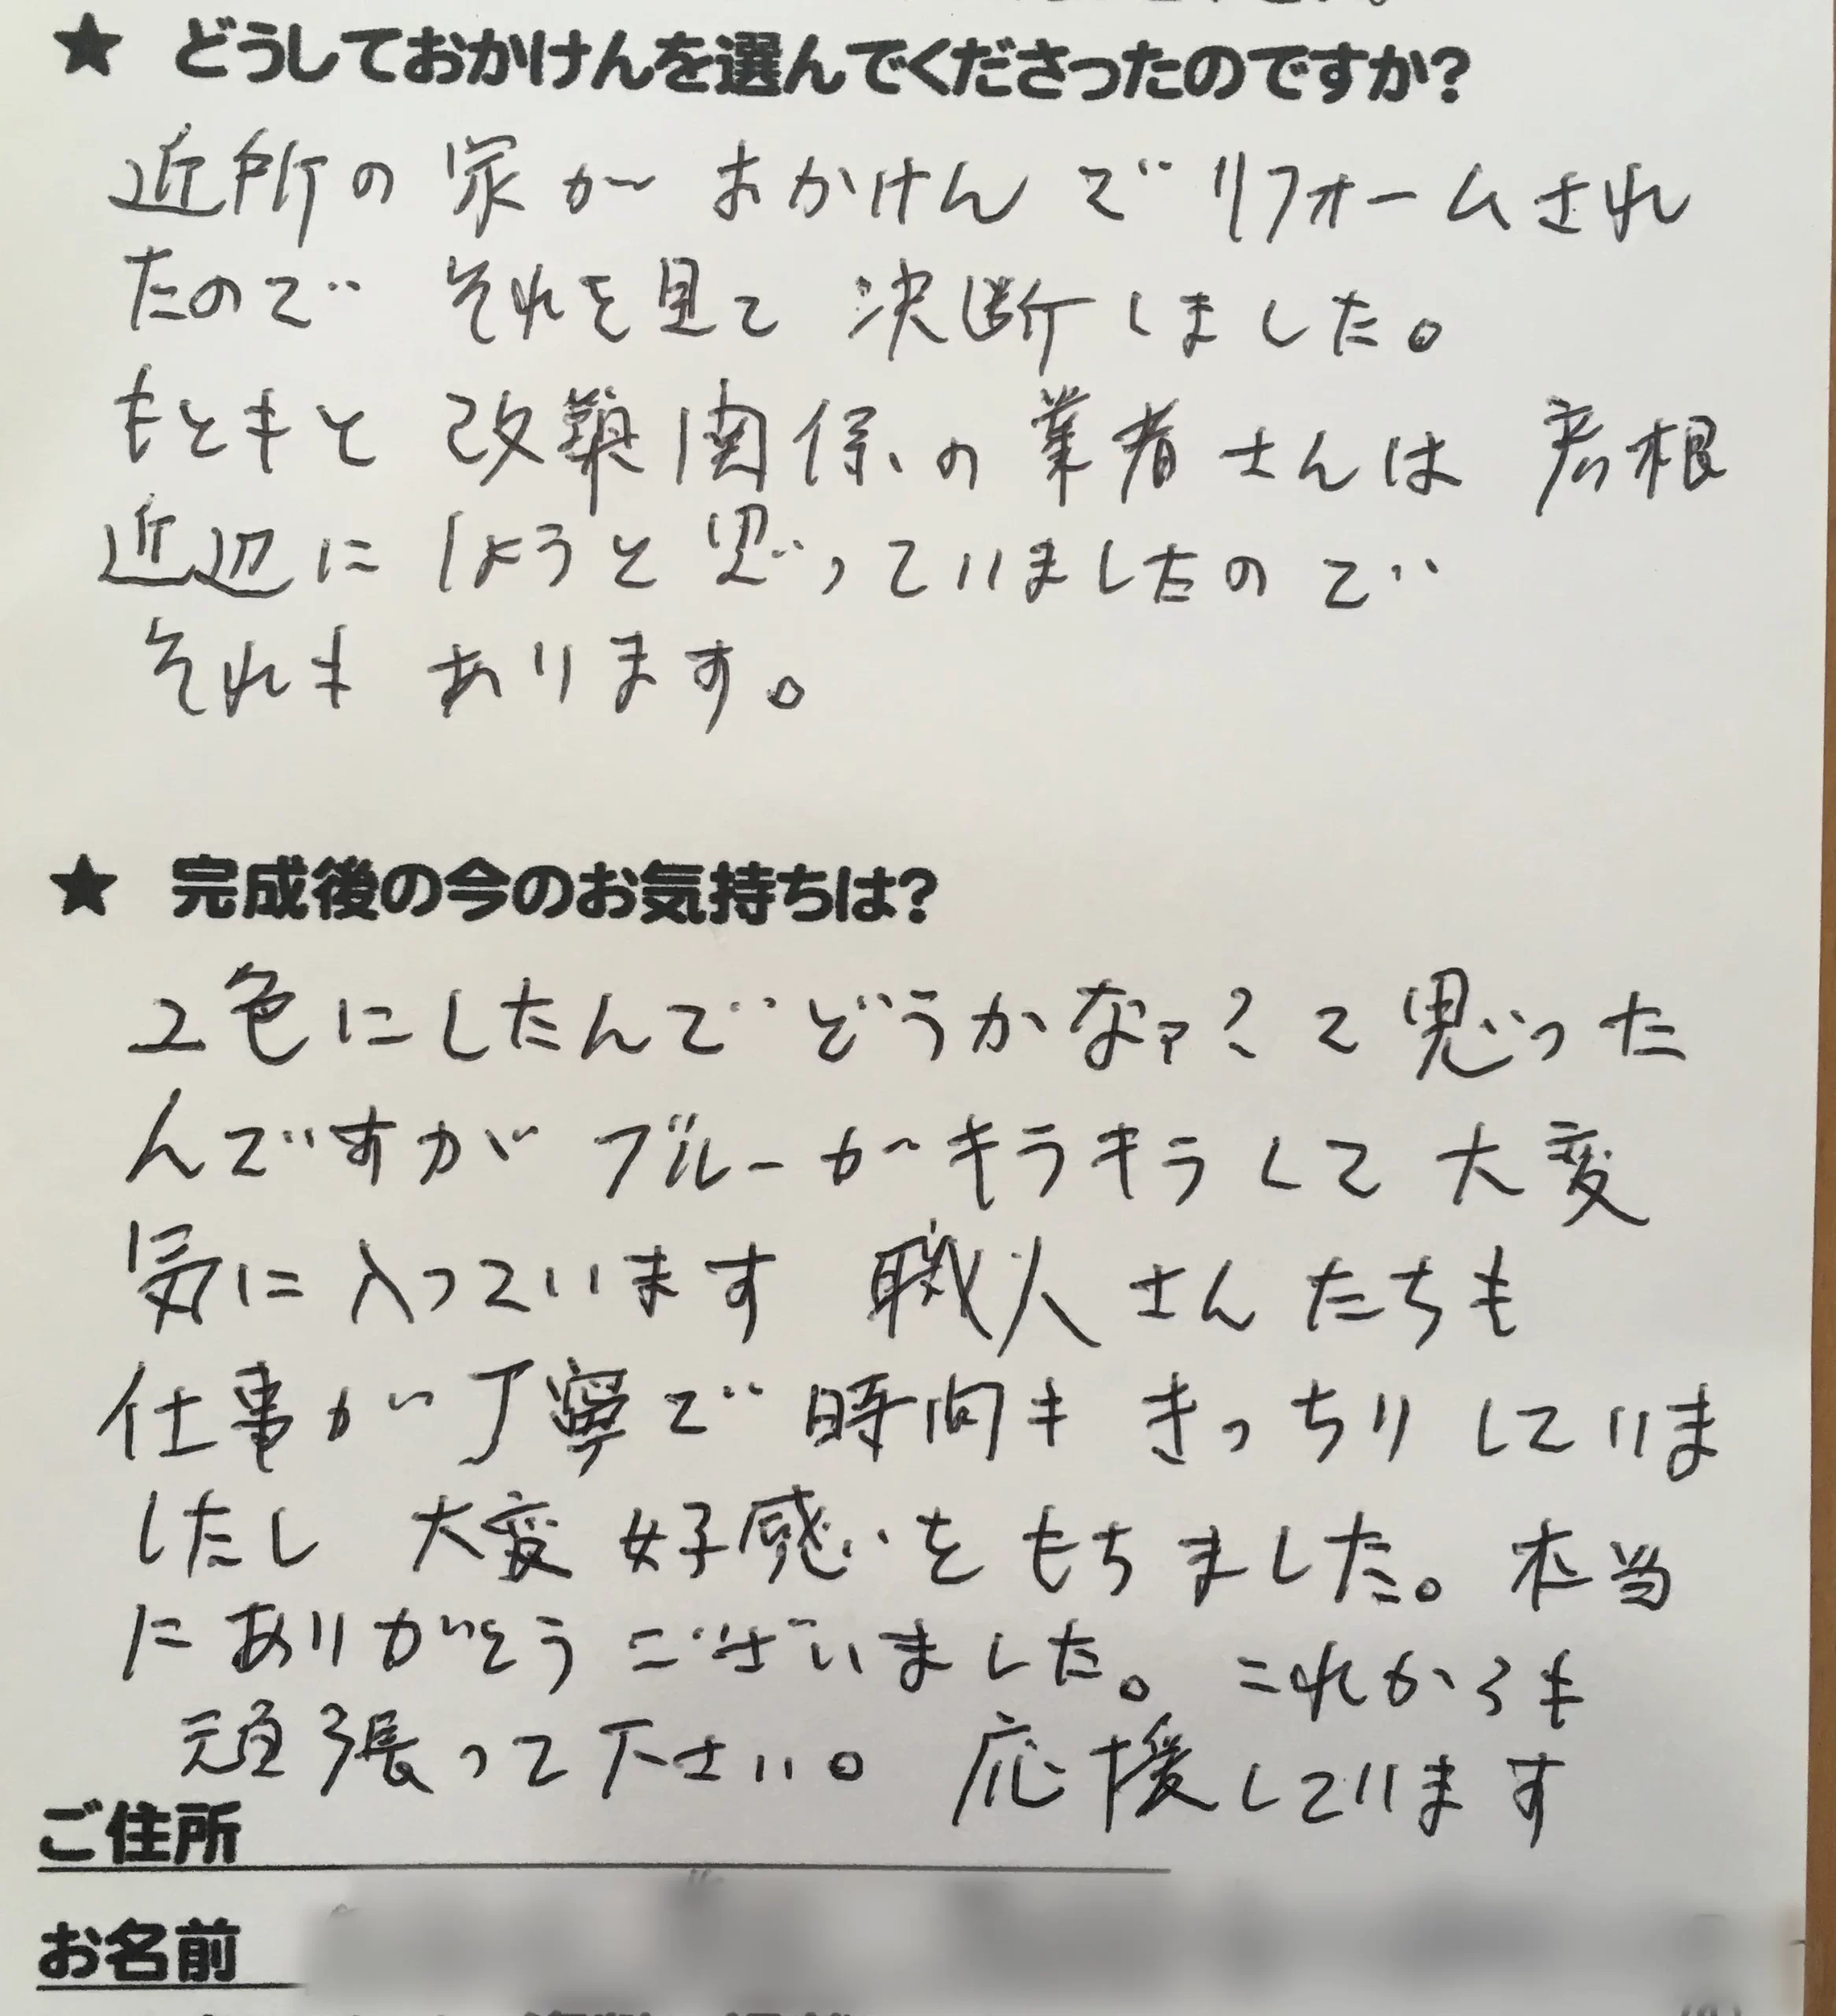 ★ どうしておかけんを選んでくださったのですか?
近所の家がおかけんでリフォームされ
たので それを見て 決断しました。
もともと 改築関係の業者さんは 彦根
近辺に しようと思っていましたので
それも あります。
★ 完成後の今のお気持ちは?
2色にしたんで どうかなァ?て思った
んですが ブルーがキラキラして 大変
気に入っています 職人さんたちも
仕事が丁寧で 時間も きっちり していま
したし 大変 好感をもちました。本当
にありがとうございました。これからも
頑張って下さい。応援しています
ご住所
お名前